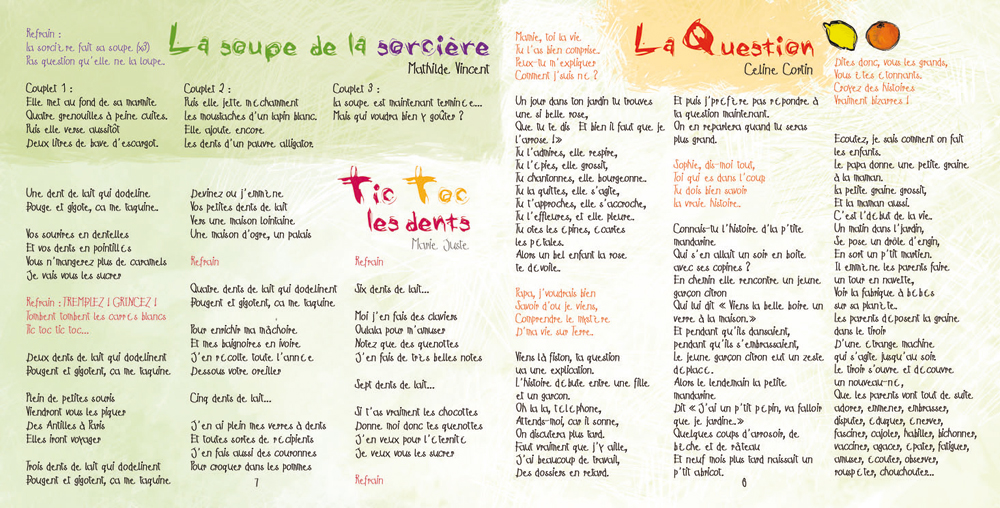 La soupe de la sorcière
Mathilde Vincent
Refrain :
La sorcière fait sa soupe (x3)
Pas question qu'elle ne la loupe..
Couplet 1 :
Elle met au fond de sa marmite
Quatre grenouilles à peine cuites.
Puis elle verse aussitôt
Deux litres de bave d'escargot.
Couplet 2 :
Puis elle jette méchamment
les moustaches d'un lapin blanc.
Elle ajoute encore
Les dents d'un pauvre alligator.
Couplet 3 :
la soupe est maintenant terminée...
Mais qui voudra bien y goûter ?
Tic Toc
les dents
Marie Juste
Une dent de lait qui dodeline
Bouge et gigote, ca me taquine..
Vos sourires en dentelles
Et vos dents en pointillés
Vous n'mangerez plus de caramels
Je vais vous les sucrer
Refrain : TREMPLEZ ! GRINCEZ !
Tombent tombent les carrés blancs
Tic toc tic toc...
Deux dents de lait qui dodelinent
Bougent et gigotent, ca me taquine
Plein de petites souris
Viendront vous les piquer
Des Antilles à Paris
Elles iront voyager
Trois dents de lait qui dodelinent
Bougent et gigotent, ca me taquine
Devinez ou j'emmène
Vos petites dents de lait
Vers une maison lointaine
Une maison d'ogre, un palais
Refrain
Quatre dents de lait qui dodelinent
Bougent et gigotent, ca me taquine
Pour enrichir ma mâchoire
Et mes baignoires en ivoire
J'en récolte toute l'année
Dessous votre oreiller
Cinq dents de lait...
J'en ai plein mes verres à dents
Et toutes sortes de récipients
J'en fais aussi des couronnes
Pour croquer dans les pommes
Refrain
Six dents de lait...
Moi j'en fais des claviers
Oulala pour m'amuser
Notez que des quenottes
J'en fais de très belles notes
Sept dents de lait...
Si t'as vraiment les chocottes
Donne moi donc tes quenottes
J'en veux pour l'éternité
Je veux vous les sucrer
Refrain
7
La Question
Celine Cortin
Mamie, toi la vie
Tu l'as bien comprise..
Peux-tu m'expliquer
Comment j'suis né ?
Un jour dans ton jardin tu trouves
une si belle rose,
Que tu te dis Et bien il faut que je
l'arrose !»
Tu l'admires, elle respire,
Tu l'épies, elle grossit,
Tu chantonnes, elle bourgeonne..
Tu la quittes, elle s'agite,
Tu t'approches, elle s'accroche,
Tu l'effleures, et elle pleure..
Tu otes les épines, écartes
les pétales.
Alors un bel enfant la rose
te dévoile..
Papa, j'voudrais bien
Savoir d'ou je viens,
Comprendre le mystère
D'ma vie sur Terre..
Viens là fiston, ta question
va une explication.
L'histoire débute entre une fille
et un garçon.
Oh la la, téléphone,
Attends-moi, car il sonne,
On discutera plus tard.
Faut vraiment que j'y aille,
J'ai beaucoup de travail,
Des dossiers en retard.
Et puis j'préfère pas répondre à
ta question maintenant.
On en repartera quand tu seras
plus grand.
Sophie, dis-moi tout,
Toi qui es dans l'coup
Tu dois bien savoir
la vraie histoire..
Connais-tu l'histoire d'la p'tite
mandarine
Qui s'en allait un soir en boîte
avec ses copines ?
En chemin elle rencontre un jeune
garçon citron
Qui lui dit « Viens la belle boire un
verre à la maison.»
Et pendant qu'ils dansaient,
pendant qu'ils s'embrassaient,
Le jeune garçon citron eut un zeste
déplacé.
Alors le lendemain la petite
mandarine
Dit « J'ai un p'tit pépin, va falloir
que je jardine..»
Quelques coups d'arrosoir, de
bêche et de râteau
Et neuf mois plus tard naissait un
p'tit abricot.
Dites donc, vous les grands,
Vous êtes étonnants.
Croyez des histoires
Vraiment bizarres !
Ecoutez, je sais comment on fait
les enfants.
Le papa donne une petite graine
à la maman.
la petite graine grossit,
Et la maman aussi.
C'est l'début de la vie..
Un matin dans l'jardin,
Se pose un drôle d'engin,
En sort un p'tit martien.
Il emmène les parents faire
un tour en navette,
Voir la fabrique à bébés
sur sa planète..
Les parents déposent la graine
dans le tiroir
D'une étrange machine
qui s'agite jusqu'au soir
Le tiroir s'ouvre et découvre
un nouveau-né,
Que les parents vont tout de suite
adorer, emmener, embrasser,
disputer, éduquer, énerver,
fasciner, cajoler, habiller, bichonner,
vacciner, agacer, épater, fatiguer,
amuser, écouter, observer,
rouspéter, chouchouter...
8